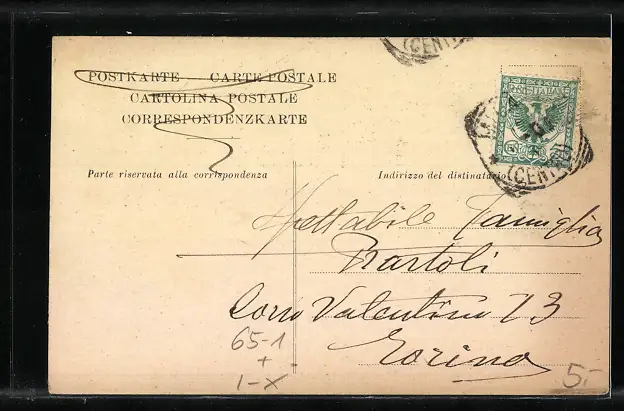 (CENT
POSTKARTE — CARTE POSTALE
CARTOLINA POSTALE
CORRESPONDENZKARTE
POSTE ITALIANE
(CENT
Parte riservata alla corrispondenza
Indirizzo del distinatario
Spettabile Famiglia
Bartoli
Corso Valentino 73
Torino
65-1
+
1-X
5.-